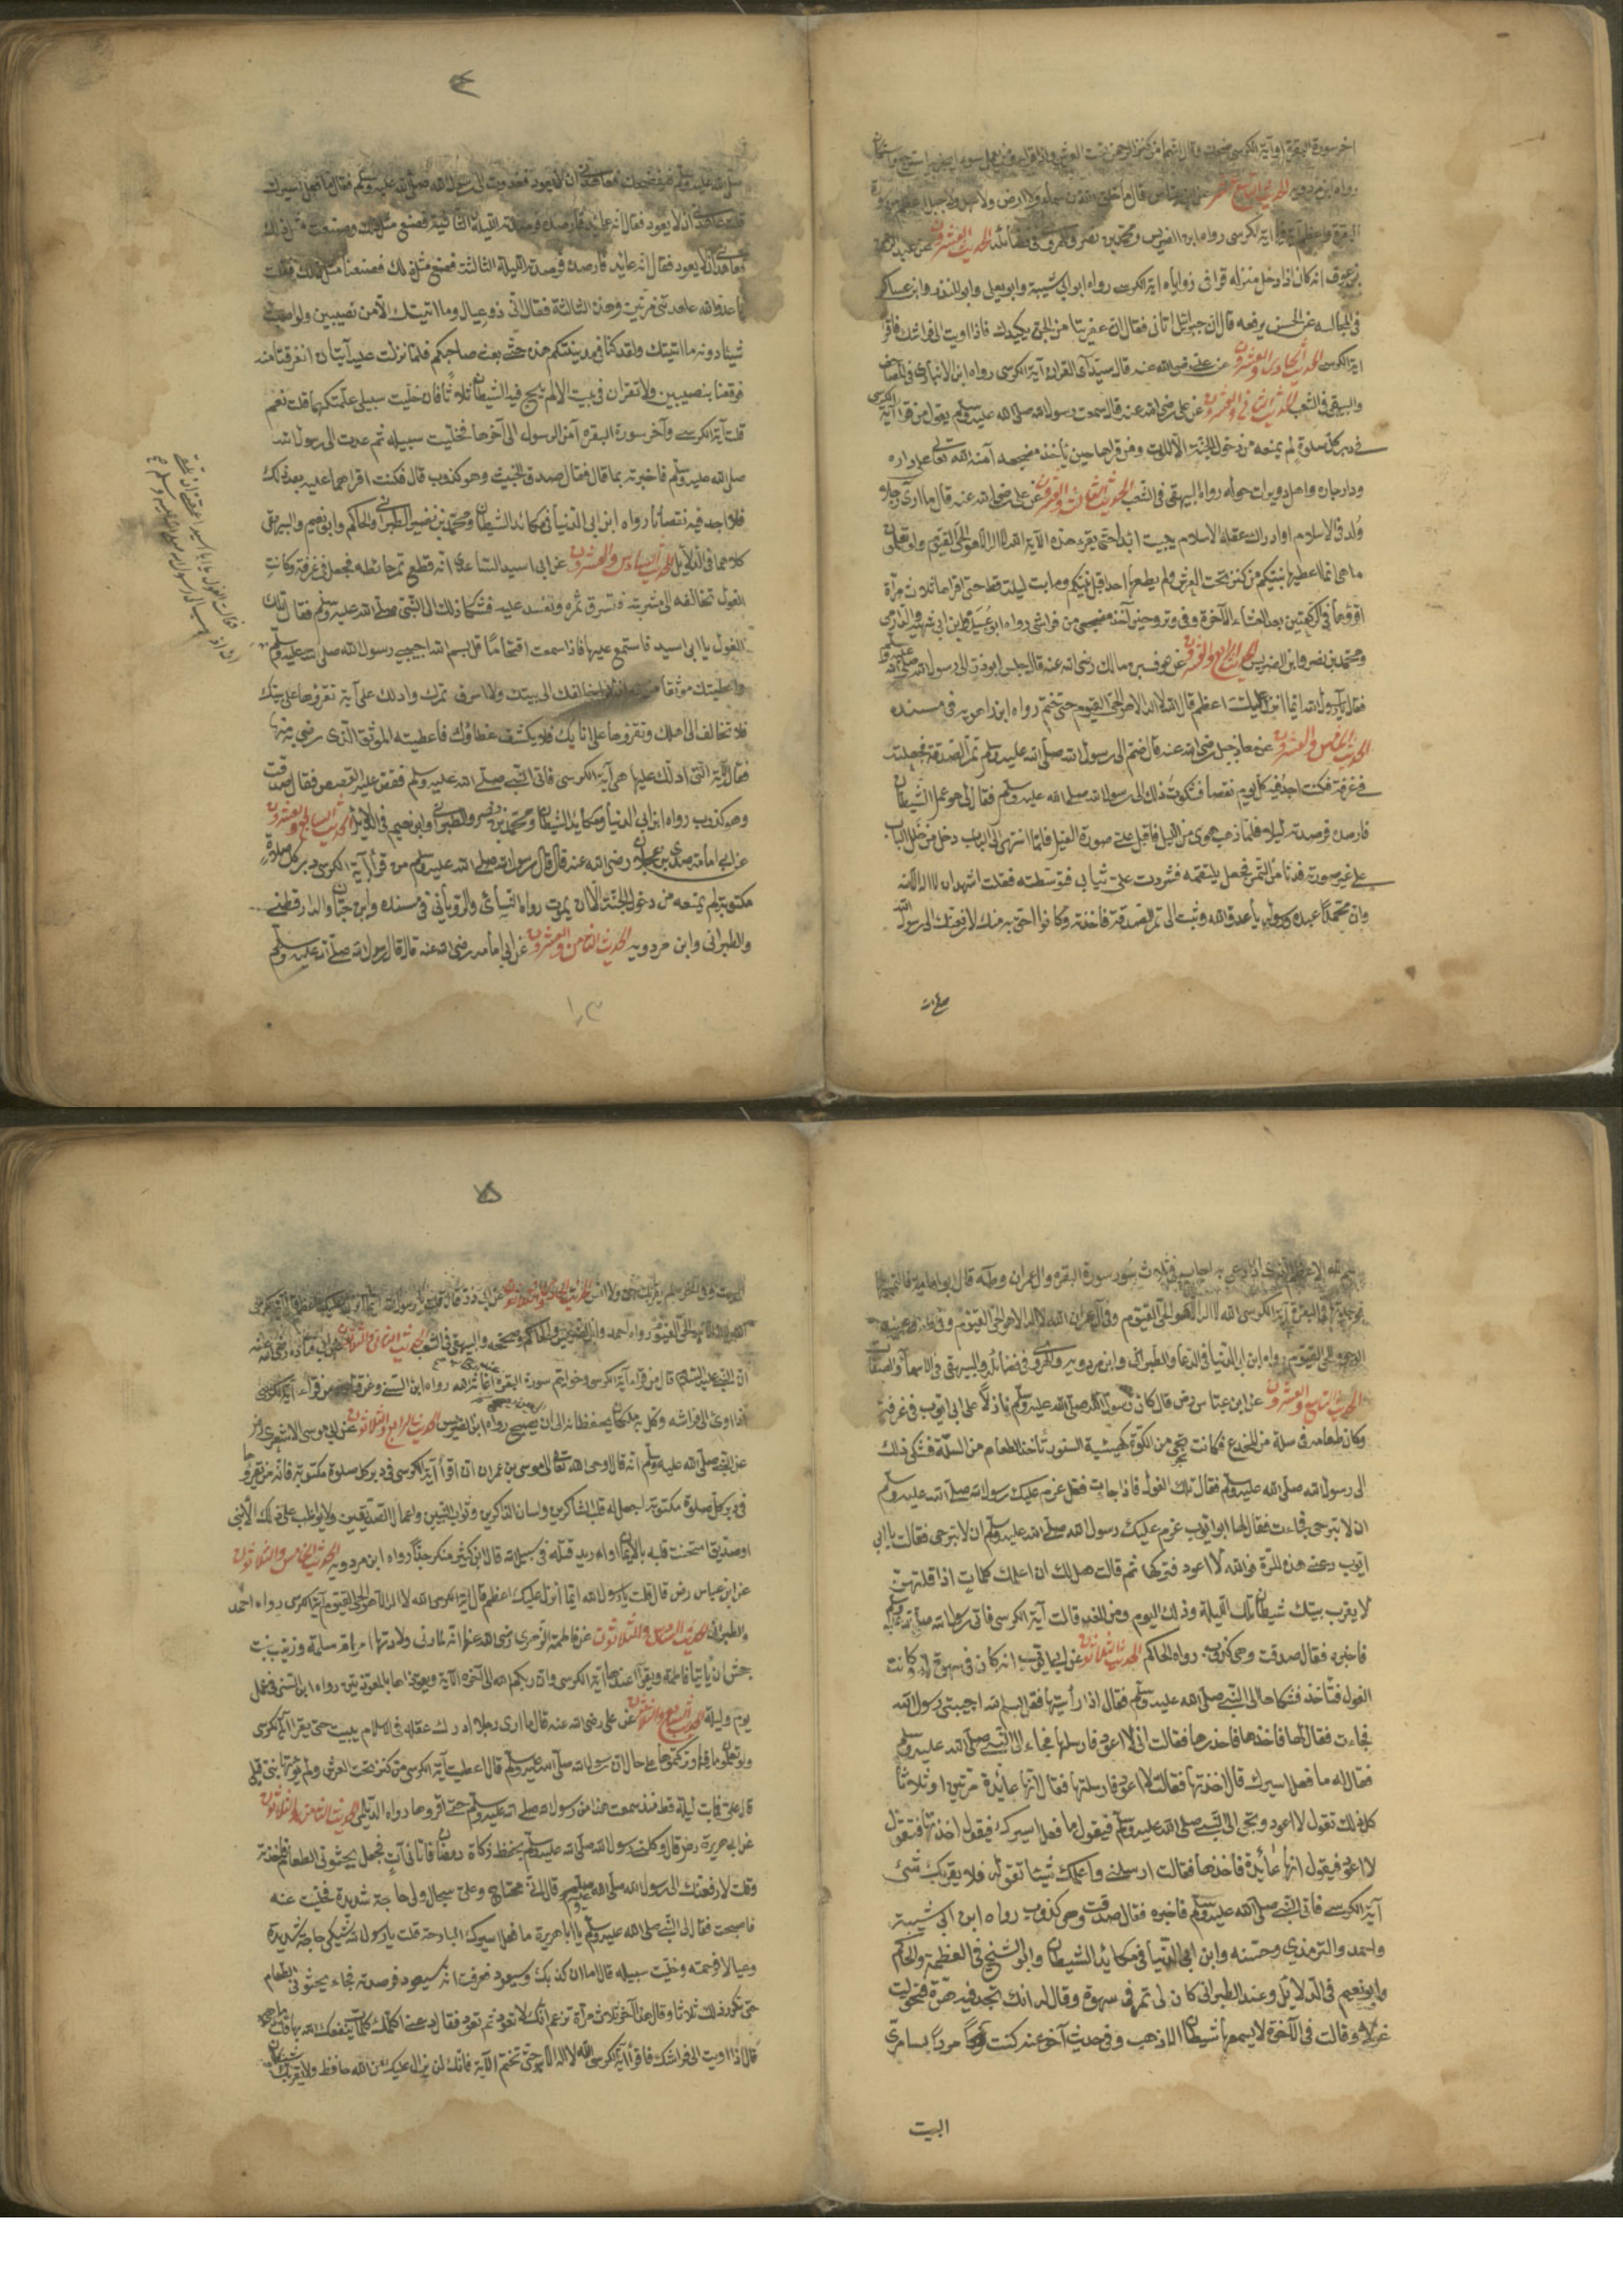 اخر سورة البقرة او آية الكرسى ضحك وقال انهما من كنز الرحمن تحت العرش واذا قرأ من يعمل سوءا يجز به استرجع واستكان
رواه ابن مردويه الحديث التاسع عشر عن ابن عباس قال ما خلق الله من سماء ولا ارض ولا سهل ولا جبل اعظم من سورة
البقرة واعظم آية فيها آية الكرسى رواه ابن الضريس ومحمد بن نصر والهروى فى فضائله الحديث العشرون عن عبد الرحمن
بن عوف انه كان اذا دخل منزله قرا فى زواياه آية الكرسى رواه ابن ابى شيبة وابو يعلى وابن المنذر وابن عساكر
فى المجالسه عن الحسن يرفعه قال ان جبرائيل اتانى فقال ان عفريتا من الجن يكيدك فاذا اويت الى فراشك فاقرا
آية الكرسى الحديث الحادى والعشرون عن على رضى الله عنه قال سيد آى القران آية الكرسى رواه ابن الانبارى فى المصاحف
والبيهقى فى الشعب الحديث الثانى والعشرون عن على رضى الله عنه قال سمعت رسول الله صلى الله عليه وسلم يقول من قرا آية الكرسى
فى دبر كل صلوة لم يمنعه من دخول الجنة الا الموت ومن قراها حين ياخذ مضجعه آمنه الله تعالى على داره
ودار جاره واهل دويرات حوله رواه البيهقى فى الشعب الحديث الثالث والعشرون عن على رضى الله عنه قال ما ارى رجلا
ولد فى الاسلام او ادرك عقله الاسلام يبيت ابدا حتى يقرء هذه الآية الله لا اله الا هو الحى القيوم ولو تعلمون
ما هى انما اعطيها نبيكم من كنز تحت العرش ولم يعطها احد قبل نبيكم وما بت ليلة قط حتى اقراها ثلاث مرات
اقرؤها فى الركعتين بعد العشاء الآخرة وفى وترى وحين آخذ مضجعى من فراشى رواه ابو عبيد وابن ابى شيبة والدارمى
ومحمد بن نصر وابن الضريس الحديث الرابع والعشرون عن عوف بن مالك رضى الله عنه قال جلس ابو ذر الى رسول الله صلى الله عليه وسلم
فقال يا رسول الله ايما انزل عليك اعظم قال الله لا اله الا هو الحى القيوم حتى تختم رواه ابن راهويه فى مسنده
الحديث الخامس والعشرون عن معاذ بن جبل رضى الله عنه قال ضم الى رسول الله صلى الله عليه وسلم تمر الصدقة فجعلته
فى غرفة فكنت اجد فيه كل يوم نقصا فشكوت ذلك الى رسول الله صلى الله عليه وسلم فقال لى هو عمل الشيطان
فارصده فرصدته ليلا فلما ذهب هوى من الليل فاقبل على صورة الفيل فلما انتهى الى الباب دخل من خلل الباب
على غير صورته فدنا من التمر فجعل يلتقمه فشددت على ثيابى فتوسطته فقلت اشهد ان لا اله الا الله
وان محمدا عبده ورسوله يا عدو الله وثبت الى تمر الصدقة فاخذته وكانوا احق به منك لارفعنك الى رسول الله
صلى الله
٤
صلى الله عليه وسلم فيفضحك فعاهدنى ان لا يعود فغدوت الى رسول الله صلى الله عليه وسلم فقال ما فعل اسيرك
فقلت عاهدنى ان لا يعود فقال انه عائد فارصده فرصدته الليلة الثانية فصنع مثل ذلك وصنعت مثل ذلك
فعاهدنى ان لا يعود فقال انه عائد فارصده فرصدته الليلة الثالثة فصنع مثل ذلك فصنعنا مثل ذلك فقلت
يا عدو الله عاهدتنى مرتين وهذه الثالثة فقال انى ذو عيال وما اتيتك الا من نصيبين ولو اصبت
شيئا دونه ما اتيتك ولقد كنا فى مدينتكم هذه حتى بعث صاحبكم فلما نزلت عليه آيتان انفرقتا منه
فوقعنا بنصيبين ولا تقرآن فى بيت الا لم يلج فيه الشيطان ثلاثا فان خليت سبيلى علمتكهما قلت نعم
قلت آية الكرسى وآخر سورة البقرة آمن الرسول الى آخرها فخليت سبيله ثم غدوت الى رسول الله
صلى الله عليه وسلم فاخبرته بما قال فقال صدق الخبيث وهو كذوب قال فكنت اقراهما عليه بعد ذلك
فلا اجد فيه نقصانا رواه ابن ابى الدنيا فى مكائد الشيطان ومحمد بن نصير الطبرانى والحاكم وابو نعيم والبيهقى
كلاهما فى الدلايل الحديث السادس والعشرون عن ابى اسيد الساعدى انه قطع تمر حائطه فجعل فى غرفة وكانت
الغول تخالفه الى مشربته فتسرق ثمره وتفسد عليه فشكا ذلك الى النبى صلى الله عليه وسلم فقال تلك
الغول يا ابى اسيد فاستمع عليها فاذا سمعت اقتحامها قل بسم الله اجيبى رسول الله صلى الله عليه وسلم
واعطيتك موثقا من الله ان لا اخالفك الى بيتك ولا اسرق تمرك وادلك على آية تقرؤها على بيتك
فلا تخالف الى اهلك وتقرؤها على انائك فلا يكشف غطاؤك فاعطيته الموثق الذى رضى به منها
فقال الآية التى ادلك عليها هى آية الكرسى فاتى النبى صلى الله عليه وسلم فقص عليه القصص فقال صدقت
وهو كذوب رواه ابن ابى الدنيا ومكايد الشيطان ومحمد بن نصر والطبرانى وابو نعيم فى الدلائل الحديث السابع والعشرون
عن ابى امامة صدى بن عجلان رضى الله عنه قال قال رسول الله صلى الله عليه وسلم من قرأ آية الكرسى دبر كل صلوة
مكتوبة لم يمنعه من دخول الجنة الا ان يموت رواه النسائى والرويانى فى مسنده وابن حبان والدارقطنى
والطبرانى وابن مردويه الحديث الثامن والعشرون عن ابى امامه رضى الله عنه قال قال رسول الله صلى الله عليه وسلم
اسم الله الاعظم الذى اذا دعى به اجاب فى ثلاث سور سورة البقرة وال عمران وطه قال ابو امامة فالتمستها
فوجدتها فى البقرة آية الكرسى الله لا اله الا هو الحى القيوم وفى آل عمران الله لا اله الا هو الحى القيوم وفى طه وعنت
الوجوه للحى القيوم رواه ابن ابى الدنيا فى الدعاء والطبرانى وابن مردويه والهروى فى فضائله والبيهقى فى الاسماء والصفات
الحديث التاسع والعشرون عن ابن عباس رض قال كان رسول الله صلى الله عليه وسلم نازلا على ابى ايوب فى غرفة
وكان طعامه فى سلة من المخدع فكانت تجئ من الكوة كهيئة السنور تأخذ الطعام من السلة فشكى ذلك
الى رسول الله صلى الله عليه وسلم فقال تلك الغول فاذا جاءت فقل عزم عليك رسول الله صلى الله عليه وسلم
ان لا تبرحى فجاءت فقال لها ابو ايوب عزم عليك رسول الله صلى الله عليه وسلم ان لا تبرحى فقالت يا ابى
ايوب دعنى هذه المرة فوالله لا اعود فتركها ثم قالت هل لك ان اعلمك كلمات اذا قلتهن
لا يقرب بيتك شيطان تلك الليلة وذلك اليوم ومن الغد قالت آية الكرسى فاتى رسول الله صلى الله عليه
فاخبره فقال صدقت وهى كذوب رواه الحاكم الحديث الثلاثون عن ابى ايوب انه كان فى سهوة له وكانت
الغول فتأخذ فشكاها الى النبى صلى الله عليه وسلم فقال اذا رأيتها فقل بسم الله اجيبى رسول الله
فجاءت فقال لها فاخذها فاخذها فقالت انى لا اعود فارسلها فجاء الى النبى صلى الله عليه وسلم
فقال له ما فعل اسيرك قال اخذتها فقالت لا اعود فارسلتها فقال انها عائدة مرتين او ثلاثا
كل ذلك تقول لا اعود ويجئ الى النبى صلى الله عليه وسلم فيقول ما فعل اسيرك فيقول اخذتها فتقول
لا اعود فيقول انها عائدة فاخذها فقالت ارسلنى واعلمك شيئا تقوله فلا يقربك شئ
آية الكرسى فاتى النبى صلى الله عليه وسلم فاخبره فقال صدقت وهى كذوب رواه ابن ابى شيبة
واحمد والترمذى وحسنه وابن ابى الدنيا فى مكائد الشيطان وابو الشيخ فى العظمة والحاكم
وابو نعيم فى الدلايل وعند الطبرانى كان لى تمر فى سهوة وقال له انك تجد فيه هرة فتحولت
عجوزا وقالت فى الآخرة لا يسمعها شيطان الا ذهب وفى حديث آخر عنه كنت
البيت
٥
الحديث الحادى والثلاثون عن ابى ذر قال قلت يا رسول الله ايما انزل عليك اعظم قال آية الكرسى
الله لا اله الا هو الحى القيوم رواه احمد وابن الضريس والحاكم وصححه والبيهقى فى الشعب الحديث الثانى والثلاثون عن ابى قتادة رضى الله عنه
ان النبى عليه السلام قال من قراء آية الكرسى وخواتيم سورة البقرة اغاثه الله رواه ابن السنى وعن قتادة من قراء آية الكرسى
اذا اوى الى فراشه وكل به ملكان يحفظانه الى ان يصبح رواه ابن الضريس الحديث الرابع والثلاثون عن ابى موسى الاشعرى
عن النبى صلى الله عليه وسلم انه قال اوحى الله تعالى الى موسى بن عمران ان اقرأ آية الكرسى فى دبر كل صلوة مكتوبة فانه من يقرؤها
فى دبر كل صلوة مكتوبة اجعل له قلب الشاكرين ولسان الذاكرين وثواب النبيين واعمال الصديقين ولا يواظب على ذلك الا نبى
او صديق امتحنت قلبه بالايمان او اه ريد قتله فى سبيل الله قال ابن كثير منكر جدا رواه ابن مردويه الحديث الخامس والثلاثون
عن ابن عباس رض قال قلت يا رسول الله ايما انزل عليك اعظم قال آية الكرسى الله لا اله الا هو الحى القيوم آية الكرسى رواه احمد
والطبرانى الحديث السادس والثلاثون عن فاطمة الزهرى رضى الله عنها انه لما دنى ولادتها امر ام سلمة وزينب بنت
جحش ان يأتيا فاطمة ويقرأا عندها آية الكرسى وان ربكم الله الى آخره الآية ويعوذاها بالمعوذتين رواه ابن السنى فى عمل
يوم وليلة الحديث السابع والثلاثون عن على رضى الله عنه قال ما ارى رجلا ادرك عقله فى الاسلام يبيت حتى يقرا آية الكرسى
ولو تعلمون ما فيها تركتموها على حال ان رسول الله صلى الله عليه وسلم قال اعطيت آية الكرسى من كنز تحت العرش ولم يؤتها نبى قبلى
قال على فما بت ليلة قط منذ سمعت هذا من رسول الله صلى الله عليه وسلم حتى اقروها رواه الديلمى الحديث الثامن والثلاثون
عن ابى هريرة رض قال وكلنى رسول الله صلى الله عليه وسلم بحفظ زكاة رمضان فاتانى آت فجعل يحثو فى الطعام فاخذته
وقلت لارفعنك الى رسول الله صلى الله عليه وسلم قال انى محتاج وعلى عيال ولى حاجة شديدة فخليت عنه
فاصبحت فقال لى النبى صلى الله عليه وسلم يا ابا هريرة ما فعل اسيرك البارحة قلت يا رسول الله شكى حاجة شديدة
وعيالا فرحمته وخليت سبيله قال اما ان كذبك وسيعود فعرفت انه سيعود فرصدته فجاء يحثو فى الطعام
حتى تكرر ذلك ثلاثا وقال هذا آخر ثلاث مرات تزعم انك لا تعود ثم تعود فقال دعنى اعلمك كلمات ينفعك الله بها قلت ما هى
قال اذا اويت الى فراشك فاقرأ آية الكرسى الله لا اله الا هو حتى تختم الآية فانك لن يزال عليك من الله حافظ ولا يقربك شيطان